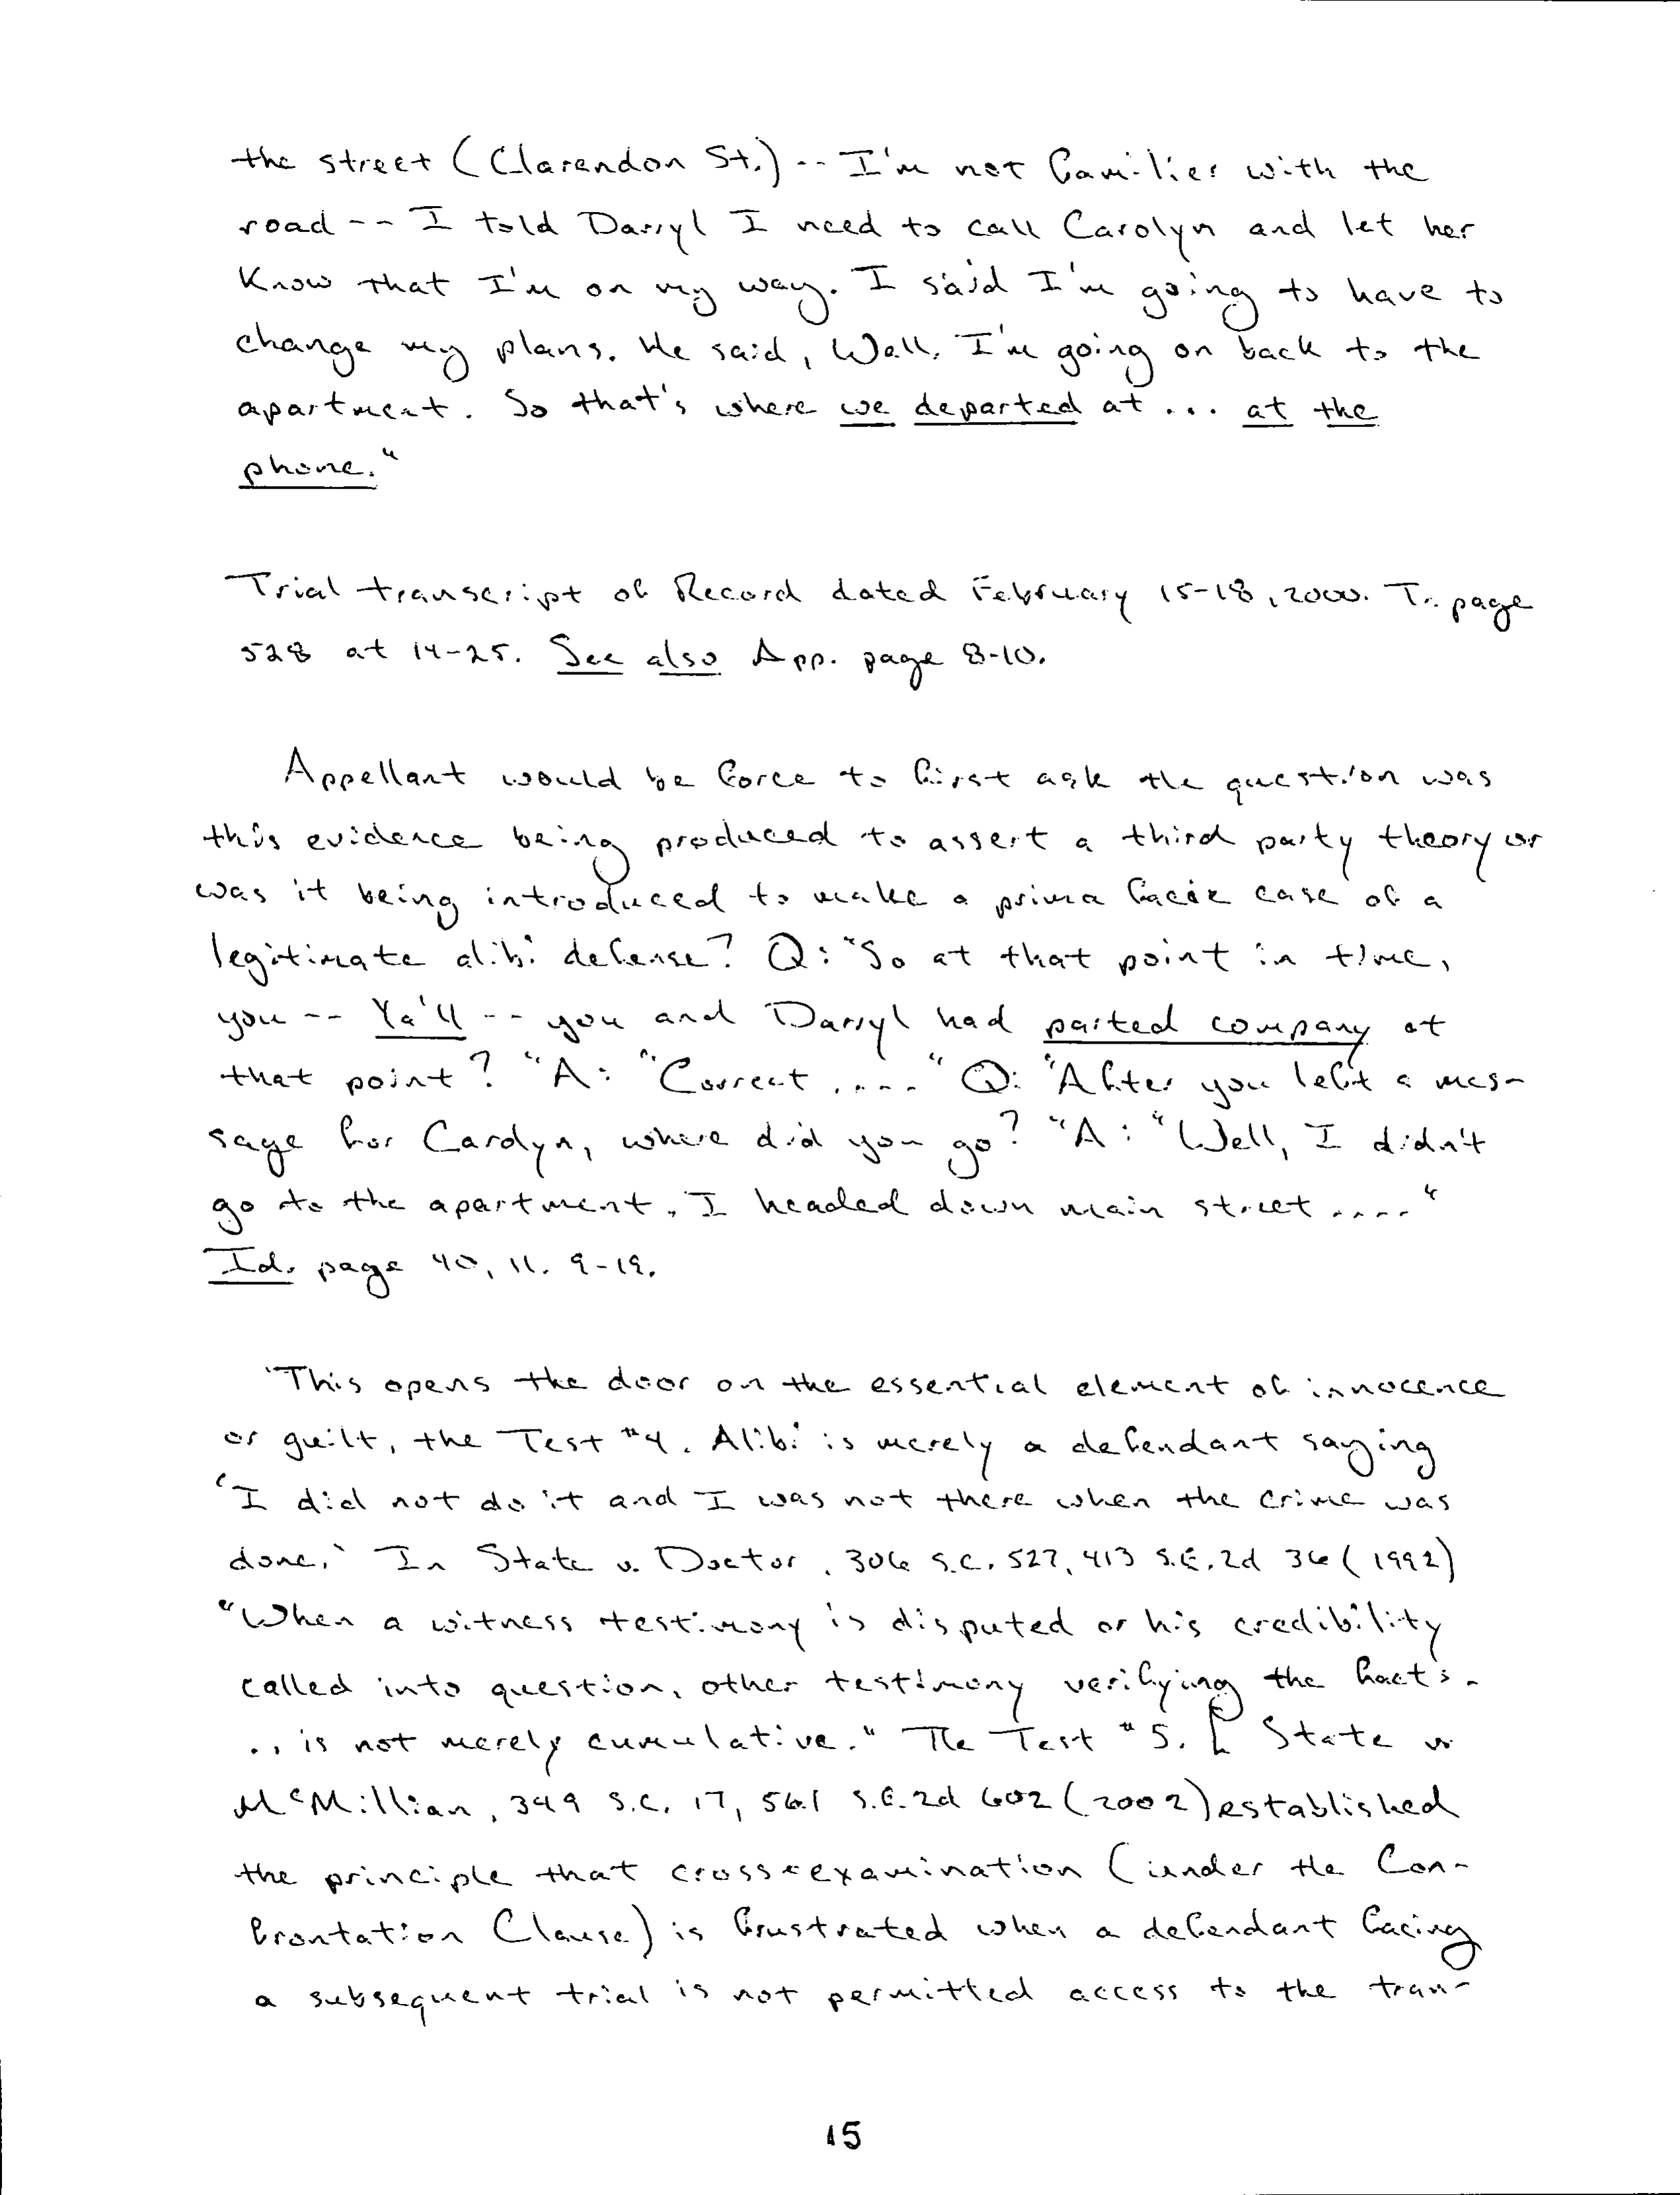 the street (Clarendon St.) -- I'm not familier with the
road -- I told Darryl I need to call Carolyn and let her
Know that I'm on my way. I said I'm going to have to
change my plans. He said, Well, I'm going on back to the
apartment. So that's where we departed at ... at the
phone."
Trial transcript of Record dated February 15-18, 2000. Tr. page
528 at 14-25. See also App. page 8-10.
Appellant would be force to first ask the question was
this evidence being produced to assert a third party theory or
was it being introduced to make a prima facie case of a
legitimate alibi defense? Q: "So at that point in time,
you -- Ya'll -- you and Darryl had parted company at
that point? "A: "Correct ...." Q: "After you left a mes-
sage for Carolyn, where did you go? "A: "Well, I didn't
go to the apartment, I headed down main street ...."
Id. page 40, 11. 9-19.
This opens the door on the essential element of innocence
or guilt, the Test #4. Alibi is merely a defendant saying
'I did not do it and I was not there when the crime was
done.' In State v. Doctor, 306 S.C. 527, 413 S.E.2d 36 (1992)
"When a witness testimony is disputed or his credibility
called into question, other testimony verifying the facts.
.. is not merely cumulative." The Test #5. [ State v.
McMillian, 349 S.C. 17, 561 S.E.2d 602 (2002) established
the principle that cross-examination (under the Con-
frontation Clause) is frustrated when a defendant facing
a subsequent trial is not permitted access to the tran-
15